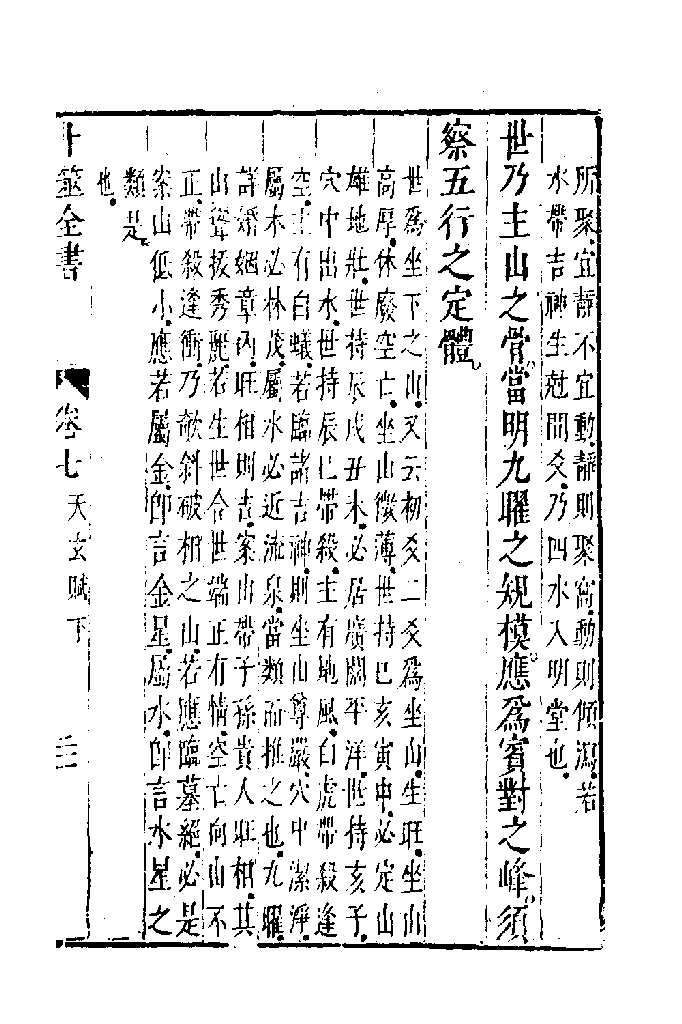 所聚宜靜不宜動靜則聚窩動則傾瀉若
水帶吉神生尅間爻乃四水入明堂也
世乃主山之骨當明九曜之規模應爲賓對之峰須
察五行之定體
世爲坐下之山又云初爻二爻爲坐山生旺坐山
高厚休廢空亡坐山微薄世持巳亥寅申必定山
雄地壯世持辰戌丑未必居廣闊平洋世持亥子
穴中出水世持辰巳帶殺主有地風白虎帶殺逢
空主有白蟻若臨諸吉神則坐山尊嚴穴中潔淨
屬木必林茂屬水必近流泉當類而推之也九曜
詳婚姻章內旺相則吉案山帶子孫貴人旺相其
山聳拔秀麗若生世合世端正有情空亡向山不
正帶殺逢衝乃欹斜破相之山若應臨墓絕必是
案山低小應若屬金卽言金星屬水卽言水星之
類是
也
卜筮全書
卷七
天玄賦下
三